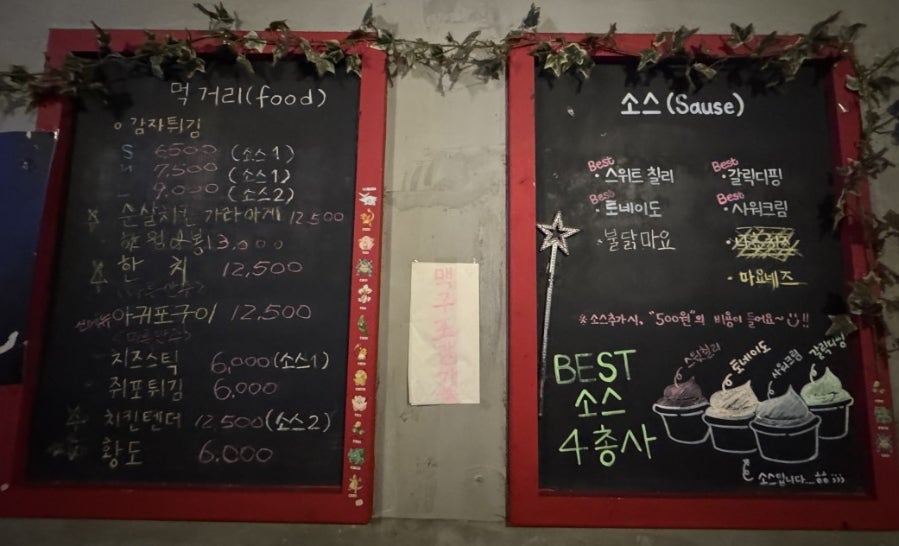 먹거리(food)
감자튀김
S 6,500 (소스1)
M 7,500 (소스1)
L 9,000 (소스2)
순살치킨 가라아게 12,500
13,000
한치 12,500
아귀포구이 12,500
치즈스틱 6,000 (소스1)
쥐포튀김 6,000
치킨텐더 12,500 (소스2)
황도 6.000
소스(Sause)
Best
·스위트 칠리
Best
·갈릭디핑
Best
·토네이도
Best
·사워크림
·불닭마요
·마요네즈
※소스추가시, "500원"의 비용이 들어요~
BEST
소스
4총사
스위트칠리
토네이도
사워크림
갈릭디핑
소스입니다...